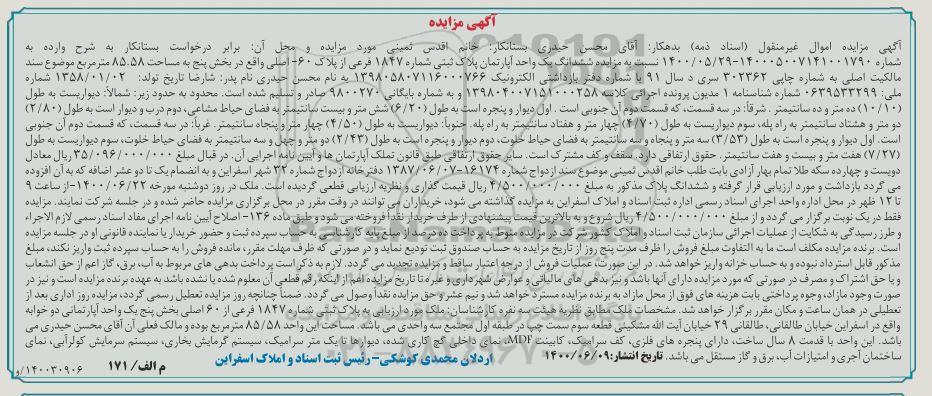 آگهی مزایده
آگهی مزایده اموال غیرمنقول (اسناد ذمه) بدهکار: آقای محسن حیدری بستانکار: خانم اقدس ثمینی مورد مزایده و محل آن: برابر درخواست بستانکار به شرح وارده به
شماره ۱۴۰۰۰۵۰۰۷۱۴۱۰۰۱۷۹۰-۱۴۰۰/۰۵/۲۹ نسبت به مزایده ششدانگ یک واحد آپارتمان پلاک ثبتی شماره ۱۸۴۷ فرعی از پلاک ۶۰- اصلی واقع در بخش پنج به مساحت ۸۵.۵۸ مترمربع موضوع سند
مالکیت اصلی به شماره چاپی ۳۰۲۳۶۲ سری د سال ۹۱ با شماره دفتر بازداشتی الکترونیک ۱۳۹۸۰۵۸۰۷۱۱۶۰۰۰۷۶۶ به نام محسن حیدری نام پدر: شارضا تاریخ تولد: ۱۳۵۸/۰۱/۰۲ شماره
ملی: ۰۶۳۹۵۳۳۲۹۹ شماره شناسنامه ۱ مدیون پرونده اجرایی کلاسه ۱۳۹۸۰۴۰۰۷۱۵۱۰۰۰۲۵۸ و به شماره بایگانی ۹۸۰۰۲۷۰ صادر و تسلیم شده است. محدود به حدود زیر: شمالاً: دیواریست به طول
(۱۰/۱۰) ده متر و ده سانتیمتر. شرقاً: در سه قسمت، که قسمت دوم آن جنوبی است. اول دیوار و پنجره است به طول (۶/۲۰) شش متر و بیست سانتیمتر به فضای حیاط مشاعی، دوم درب و دیوار است به طول (۲/۸۰)
دو متر و هشتاد سانتیمتر به راه پله، سوم دیواریست به طول (۴/۷۰) چهار متر و هفتاد سانتیمتر به راه پله. جنوباً: دیواریست به طول (۴/۵۰) چهار متر و پنجاه سانتیمتر. غرباً: در سه قسمت، که قسمت دوم آن جنوبی
است. اول دیوار و پنجره است به طول (۳/۵۳) سه متر و پنجاه و سه سانتیمتر به فضای حیاط خلوت، دوم دیوار و پنجره است به طول (۲/۴۳) دو متر و چهل و سه سانتیمتر به فضای حیاط خلوت، سوم دیواریست به طول
(۷/۲۷) هفت متر و بیست و هفت سانتیمتر. حقوق ارتفاقی دارد. سقف و کف مشترک است. سایر حقوق ارتفاقی طبق قانون تملک آپارتمان ها و آیین نامه اجرایی آن. در قبال مبلغ ۳۵/۰۹۶/۰۰۰/۰۰۰ ریال معادل
دویست و چهارده سکه طلا تمام بهار آزادی بابت طلب خانم اقدس ثمینی موضوع سند ازدواج شماره ۱۶۱۷۴-۱۳۸۷/۰۶/۰۷ دفترخانه ازدواج شماره ۳۲ شهر اسفراین و به انضمام یک تا دو عشر اضافه که به آن افزوده
می گردد بازداشت و مورد ارزیابی قرار گرفته و ششدانگ پلاک مذکور به مبلغ ۴/۵۰۰/۰۰۰/۰۰۰ ریال قیمت گذاری و نظریه ارزیابی قطعی گردیده است. ملک در روز دوشنبه مورخه ۱۴۰۰/۰۶/۲۲- از ساعت ۹
تا ۱۲ ظهر در محل اداره واحد اجرای اسناد رسمی اداره ثبت اسناد و املاک اسفراین به مزایده گذاشته می شود، خریداران می توانند در وقت مقرر در محل برگزاری مزایده حاضر شده و در جلسه شرکت نمایند. مزایده
فقط در یک نوبت برگزار می گردد و از مبلغ ۴/۵۰۰/۰۰۰/۰۰۰ ریال شروع و به بالاترین قیمت پیشنهادی از طرف خریدار نقداً فروخته می شود و طبق ماده ۱۳۶- اصلاح آیین نامه اجرای مفاد اسناد رسمی لازم الاجراء
و طرز رسیدگی به شکایت از عملیات اجرائی سازمان ثبت اسناد و املاک کشور شرکت در مزایده منوط به پرداخت ده درصد از مبلغ پایه کارشناسی به حساب سپرده ثبت و حضور خریدار یا نماینده قانونی او در جلسه مزایده
است. برنده مزایده مکلف است ما به التفاوت مبلغ فروش را ظرف مدت پنج روز از تاریخ مزایده به حساب صندوق ثبت تودیع نماید و در صورتی که ظرف مهلت مقرر، مانده فروش را به حساب سپرده ثبت واریز نکند، مبلغ
مذکور قابل استرداد نبوده و به حساب خزانه واریز خواهد شد. در این صورت، عملیات فروش از درجه اعتبار ساقط و مزایده تجدید می گردد. لازم به ذکر است پرداخت بدهی های مربوط به آب، برق، گاز اعم از حق انشعاب
و یا حق اشتراک و مصرف در صورتی که مورد مزایده دارای آنها باشد و نیز بدهی های مالیاتی و عوارض شهرداری و غیره تا تاریخ مزایده اعم از اینکه رقم قطعی آن معلوم شده یا نشده باشد به عهده برنده مزایده است و نیز در
صورت وجود مازاد، وجوه پرداختی بابت هزینه های فوق از محل مازاد به برنده مزایده مسترد خواهد شد و نیم عشر و حق مزایده نقداً وصول می گردد. ضمناً چنانچه روز مزایده تعطیل رسمی گردد، مزایده روز اداری بعد از
تعطیلی در همان ساعت و مکان مقرر برگزار خواهد شد. مشخصات ملک مطابق نظریه هیئت سه نفره کارشناسان: ملک مورد ارزیابی به پلاک ثبتی شماره ۱۸۴۷ فرعی از ۶۰ اصلی بخش پنج یک واحد آپارتمانی دو خوابه
واقع در اسفراین خیابان طالقانی، طالقانی ۲۹ خیابان آیت الله مشکینی قطعه سوم سمت چپ در طبقه اول مجتمع سه واحدی می باشد. مساحت این واحد ۸۵/۵۸ مترمربع بوده و مالک فعلی آن آقای محسن حیدری می
باشد. این واحد با قدمت ۸ سال ساخت، دارای پنجره های فلزی، کف سرامیک، کابینت MDF، نمای داخلی گچ کاری شده، دیوارها تا یک متر سرامیک، سیستم گرمایش بخاری، سیستم سرمایش کولرآبی، نمای
ساختمان آجری و امتیازات آب، برق و گاز مستقل می باشد. تاریخ انتشار: ۱۴۰۰/۰۶/۰۹
اردلان محمدی کوشکی- رئیس ثبت اسناد و املاک اسفراین
م الف/ ۱۷۱
۱۴۰۰۳۰۹۰۶/و